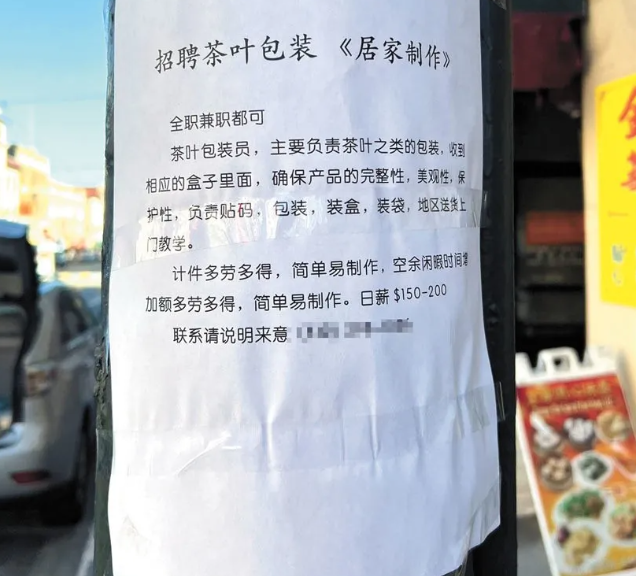 招聘茶叶包装 《居家制作》
全职兼职都可
茶叶包装员，主要负责茶叶之类的包装，收到
相应的盒子里面，确保产品的完整性，美观性，保
护性，负责贴码，包装，装盒，装袋，地区送货上
门教学。
计件多劳多得，简单易制作，空余闲暇时间增
加额多劳多得，简单易制作。日薪 $150-200
联系请说明来意：